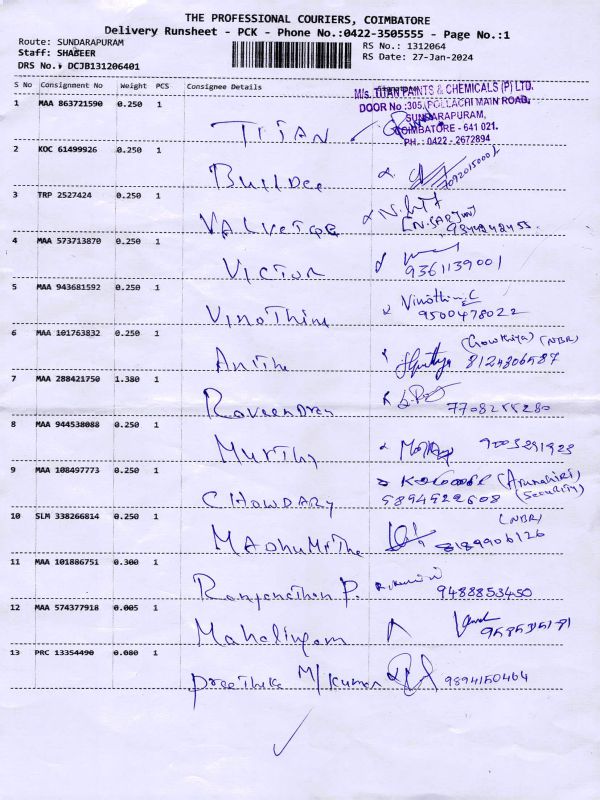 THE PROFESSIONAL COURIERS, COIMBATORE
Delivery Runsheet - PCK - Phone No.:0422-3505555 - Page No.:1
Route: SUNDARAPURAM RS No.: 1312064
Staff: SHABEER RS Date: 27-Jan-2024
DRS No.: DCJB131206401
S No Consignment No Weight PCS Consignee Details
M/s. TITAN PAINTS & CHEMICALS (P) LTD.
DOOR No :305, POLLACHI MAIN ROAD,
SUNDARAPURAM,
COIMBATORE - 641 021.
PH.: 0422 - 2672894
1 MAA 863721590 0.250 1
TITAN
2 KOC 61499926 0.250 1
Builder 7092015001
3 TRP 2527424 0.250 1
VALVETAE
4 MAA 573713870 0.250 1
VICTOR 9361139001
5 MAA 943681592 0.250 1
Vinothini Vinothini.C
9500478022
6 MAA 101763832 0.250 1
Anitha (Gowthiya) (NBR)
8124306587
7 MAA 288421750 1.380 1
Raveendren 7708255280
8 MAA 944538088 0.250 1
Murthy 9003291923
9 MAA 108497773 0.250 1
CHOWDARY (Security)
9894922608
10 SLM 338266814 0.250 1
MADHUMITHA (NBR)
8189906126
11 MAA 101886751 0.300 1
Ranganathan P. 9488853450
12 MAA 574377918 0.005 1
Mahalingam
13 PRC 13354490 0.080 1
Preethika M/ Kumar 9894150464